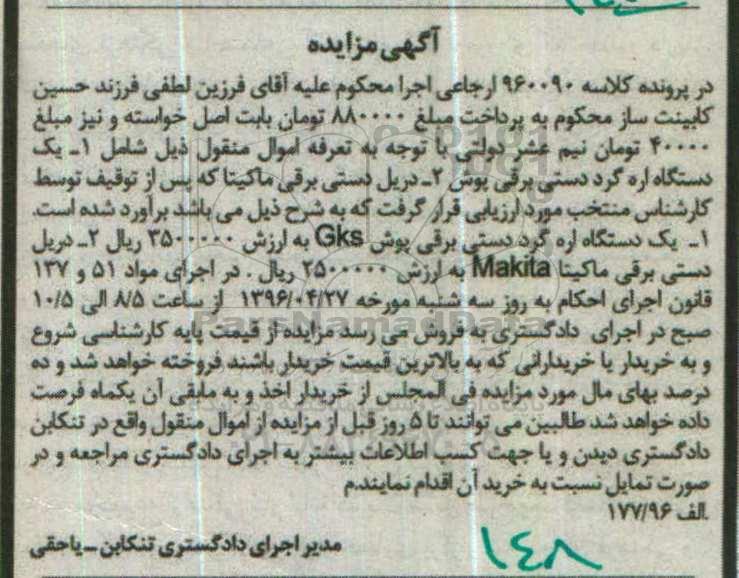 آگهی مزایده
در پرونده کلاسه ۹۶۰۰۹۰ ارجاعی اجرا محکوم علیه آقای فرزین لطفی فرزند حسین
کابینت ساز محکوم به پرداخت مبلغ ۸۸۰۰۰۰ تومان بابت اصل خواسته و نیز مبلغ
۴۰۰۰۰ تومان نیم عشر دولتی با توجه به تعرفه اموال منقول ذیل شامل ۱ـ یک
دستگاه اره گرد دستی برقی پوش ۲ـ دریل دستی برقی ماکیتا که پس از توقیف توسط
کارشناس منتخب مورد ارزیابی قرار گرفت که به شرح ذیل می باشد برآورد شده است.
۱ـ یک دستگاه اره گرد دستی برقی پوش Gks به ارزش ۳۵۰۰۰۰۰ ریال ۲ـ دریل
دستی برقی ماکیتا Makita به ارزش ۲۵۰۰۰۰۰ ریال . در اجرای مواد ۵۱ و ۱۳۷
قانون اجرای احکام به روز سه شنبه مورخه ۱۳۹۶/۰۴/۲۷ از ساعت ۸/۵ الی ۱۰/۵
صبح در اجرای دادگستری به فروش می رسد مزایده از قیمت پایه کارشناسی شروع
و به خریدار یا خریدارانی که به بالاترین قیمت خریدار باشند فروخته خواهد شد و ده
درصد بهای مال مورد مزایده فی المجلس از خریدار اخذ و به مابقی آن یکماه فرصت
داده خواهد شد طالبین می توانند تا ۵ روز قبل از مزایده از اموال منقول واقع در تنکابن
دادگستری دیدن و یا جهت کسب اطلاعات بیشتر به اجرای دادگستری مراجعه و در
صورت تمایل نسبت به خرید آن اقدام نمایند.م
.الف ۱۷۷/۹۶
مدیر اجرای دادگستری تنکابن ـ یاحقی
۱۴۸
ParsNamadData